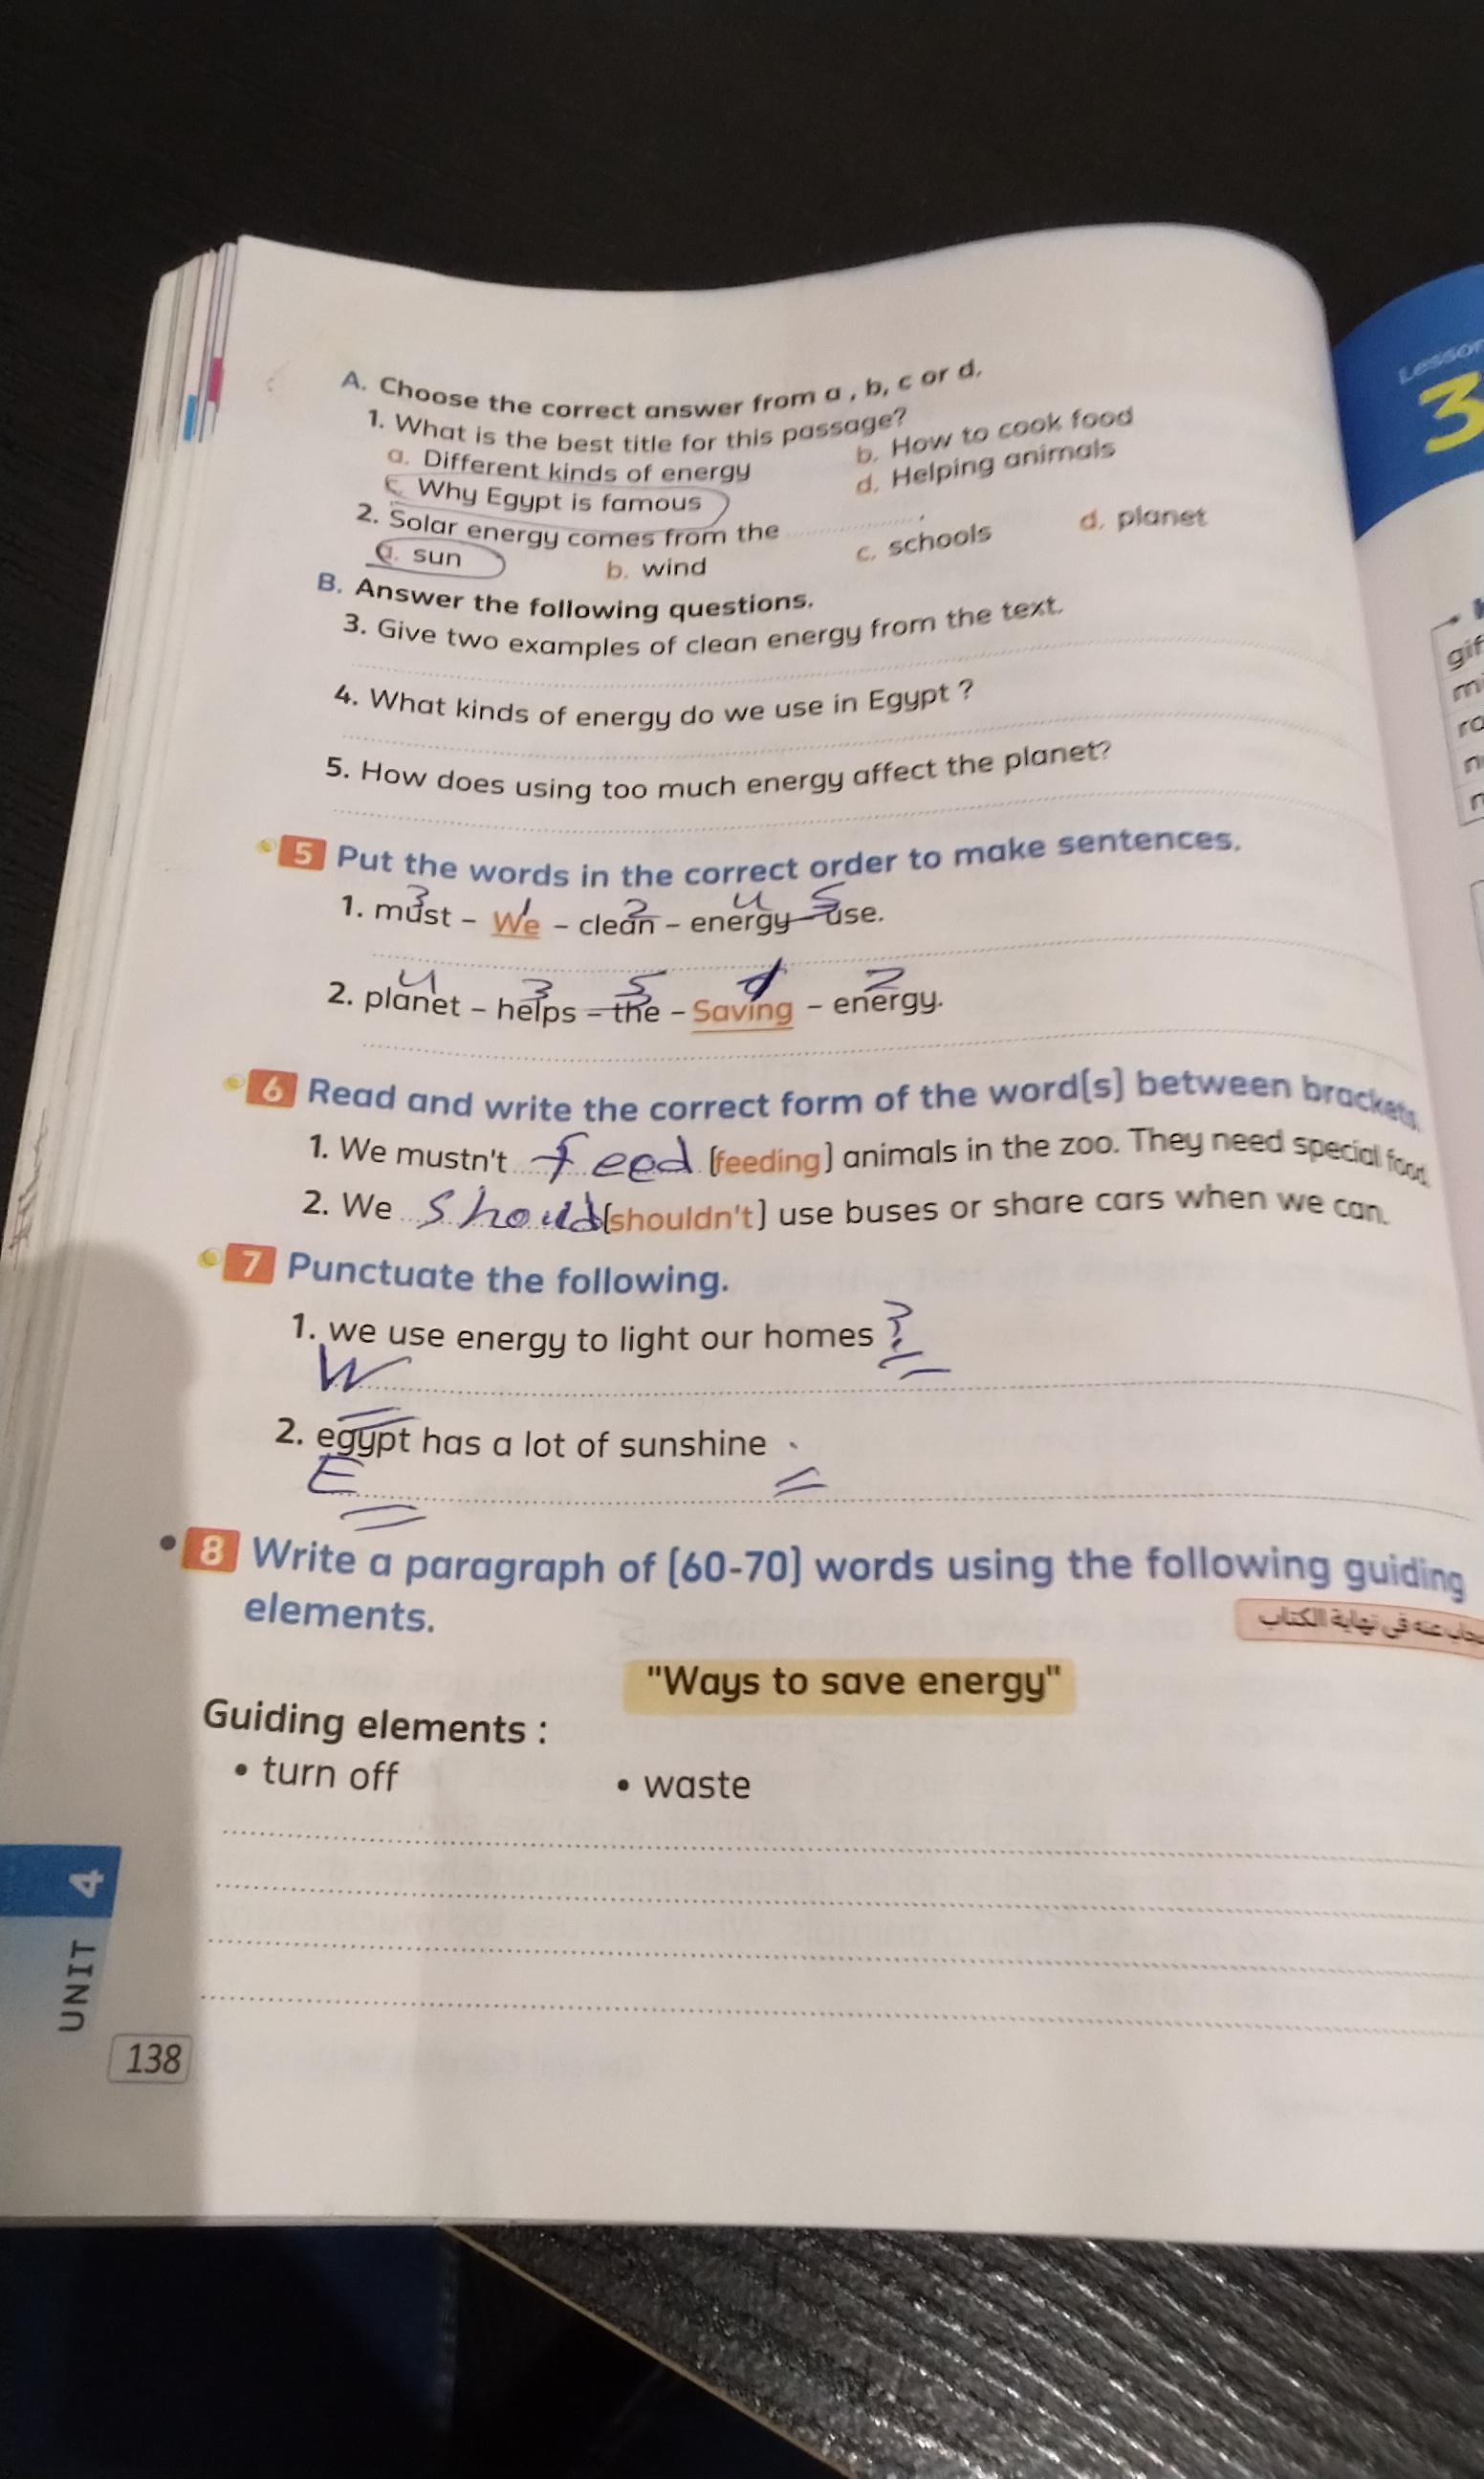 A. Choose the correct answer from a , b, c or d.
1. What is the best title for this passage?
a. Different kinds of energy b. How to cook food
c. Why Egypt is famous d. Helping animals
2. Solar energy comes from the .
a. sun b. wind c. schools d. planet
B. Answer the following questions.
3. Give two examples of clean energy from the text.
4. What kinds of energy do we use in Egypt ?
5. How does using too much energy affect the planet?
5 Put the words in the correct order to make sentences.
3 1 2 4 5
1. must - We - clean - energy - use.
4 3 5 1 2
2. planet - helps - the - Saving - energy.
6 Read and write the correct form of the word(s) between brackets.
1. We mustn't feed (feeding) animals in the zoo. They need special food.
2. We should (shouldn't) use buses or share cars when we can.
7 Punctuate the following.
1. we use energy to light our homes ?
W
2. egypt has a lot of sunshine .
E
8 Write a paragraph of (60-70) words using the following guiding
elements.
عنه فى نهاية الكتاب
"Ways to save energy"
Guiding elements :
• turn off • waste
UNIT 4
138
Lesson
3
gif